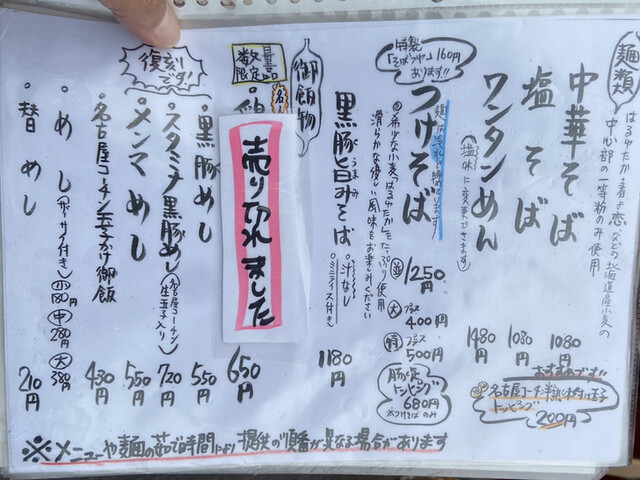 麺類
はるゆたか・春よ恋などの北海道産小麦の
中心部の一等粉のみ使用
中華そば 1080円
塩そば 1030円
ワンタンめん 1480円
(塩味に変更できます)
おすすめです!!
名古屋コーチン半熟味付玉子
トッピング 200円
特製「そばツヤ」160円
あります!!
麺は冷水で締めております!
つけそば
並 1250円
大 プラス 400円
特 プラス 500円
希少な小麦「はるゆたか」をたっぷり使用
滑らかな優しい風味をお楽しみください
トッピング
680円
つけそばのみ
黒豚旨みそば 1180円
うまみ
汁なし
ミニライス付き
御飯物
数量限定品
売り切れました
650円
黒豚めし 550円
復刻です!
スタミナ黒豚めし 720円
(名古屋コーチン生玉子入り)
メンマめし 550円
名古屋コーチン玉子かけ御飯 430円
めし
小 180円
中 280円
大 380円
替めし 210円
※メニューや麺の茹で時間により提供の順番が異なる場合があります